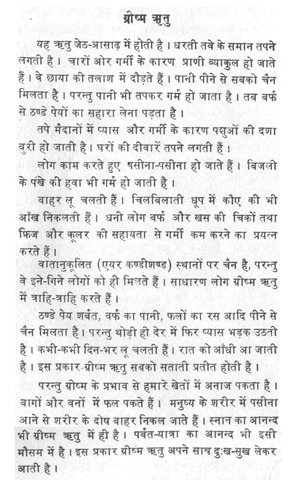 ग्रीष्म ऋतु
यह ऋतु जेठ-आसाढ़ में होती है। धरती तवे के समान तपने
लगती है। चारों ओर गर्मी के कारण प्राणी व्याकुल हो जाते
हैं। वे छाया की तलाश में दौड़ते हैं। पानी पीने से सबको चैन
मिलता है। परन्तु पानी भी तपकर गर्म हो जाता है। तब बर्फ
से ठण्डे पेयों का सहारा लेना पड़ता है।
तपे मैदानों में प्यास और गर्मी के कारण पशुओं की दशा
बुरी हो जाती है। घरों की दीवारें तपने लगती हैं।
लोग काम करते हुए पसीना-पसीना हो जाते हैं। बिजली
के पंखे की हवा भी गर्म हो जाती है।
बाहर लू चलती हैं। चिलबिलाती धूप में कौए की भी
आँख निकलती हैं। धनी लोग बर्फ और खस की चिकों तथा
फ्रिज और कूलर की सहायता से गर्मी कम करने का प्रयत्न
करते हैं।
वातानुकूलित (एयर कण्डीशण्ड) स्थानों पर चैन है, परन्तु
वे इने-गिने लोगों को ही मिलते हैं। साधारण लोग ग्रीष्म ऋतु
में त्राहि-त्राहि करते हैं।
ठण्डे पेय शर्बत, बर्फ का पानी, फलों का रस आदि पीने से
चैन मिलता है। परन्तु थोड़ी ही देर में फिर प्यास भड़क उठती
है। कभी-कभी दिन-भर लू चलती हैं। रात को आँधी आ जाती
है। इस प्रकार-ग्रीष्म ऋतु सबको सताती प्रतीत होती है।
परन्तु ग्रीष्म के प्रभाव से हमारे खेतों में अनाज पकता है।
बागों और वनों में फल पकते हैं। मनुष्य के शरीर में पसीना
आने से शरीर के दोष बाहर निकल जाते हैं। स्नान का आनन्द
भी ग्रीष्म ऋतु में ही है। पर्वत-यात्रा का आनन्द भी इसी
मौसम में है। इस प्रकार ग्रीष्म ऋतु अपने साथ दुःख-सुख लेकर
आती है।